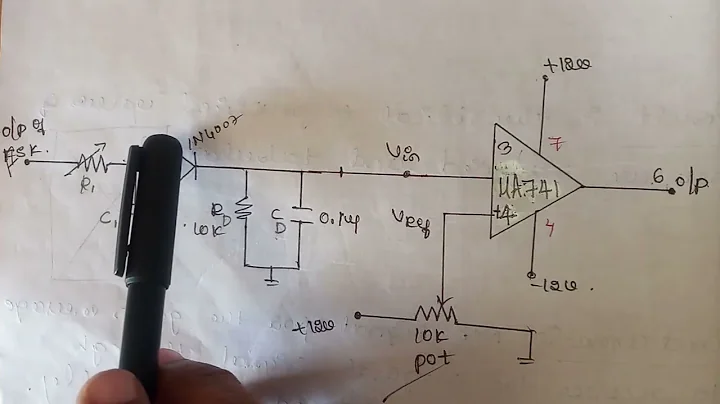 O/P of
ASK.
R1
C1
1N4007
RD
10K
CD
0.1μf
Vin
VRef
3
μA741
+12v
7
4
-12v.
6 O/P
+12v
10K
pot